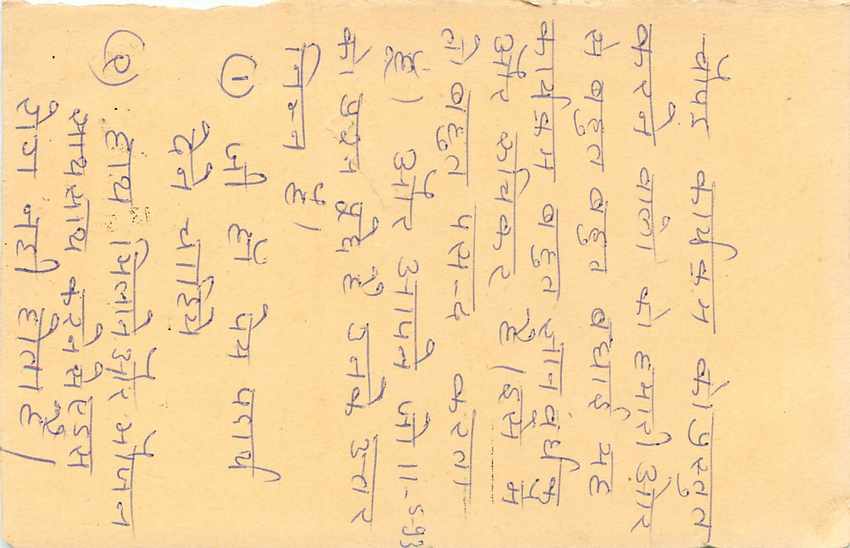 चौपड कार्यक्रम को प्रस्तुत
करने वालो को हमारी ओर
से बहुत बहुत बधाई यह
कार्यक्रम बहुत ज्ञानवर्धक
और रूचिकर है। इसे म
तो बहुत पसन्द करता
हूँ। और आपने जो 11-5-93
को प्रश्न पुछे है उनके उत्तर
निम्न है।
① जी हाँ पेय पदार्थ
देने चाहिये
② हाथ मिलाने और भोजन
साथ साथ करने से एडस
रोग नही होता है।